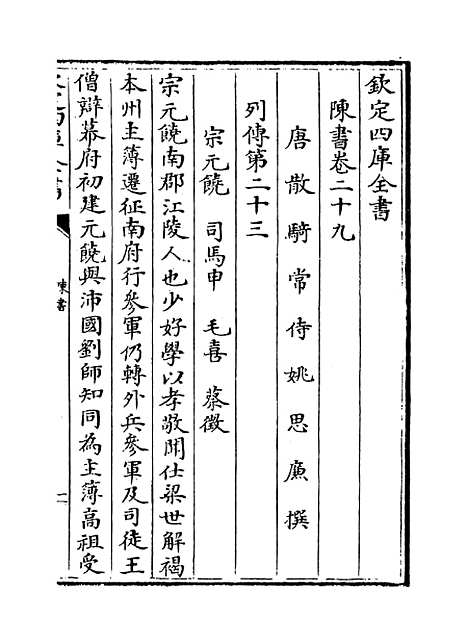 欽定四庫全書
陳書卷二十九
唐散騎常侍姚思廉撰
列傳第二十三
宗元饒 司馬申 毛喜 蔡徵
宗元饒南郡江陵人也少好學以孝敬聞仕梁世解褐
本州主簿遷征南府行參軍仍轉外兵參軍及司徒王
僧辯幕府初建元饒與沛國劉師知同為主簿高祖受
陳書